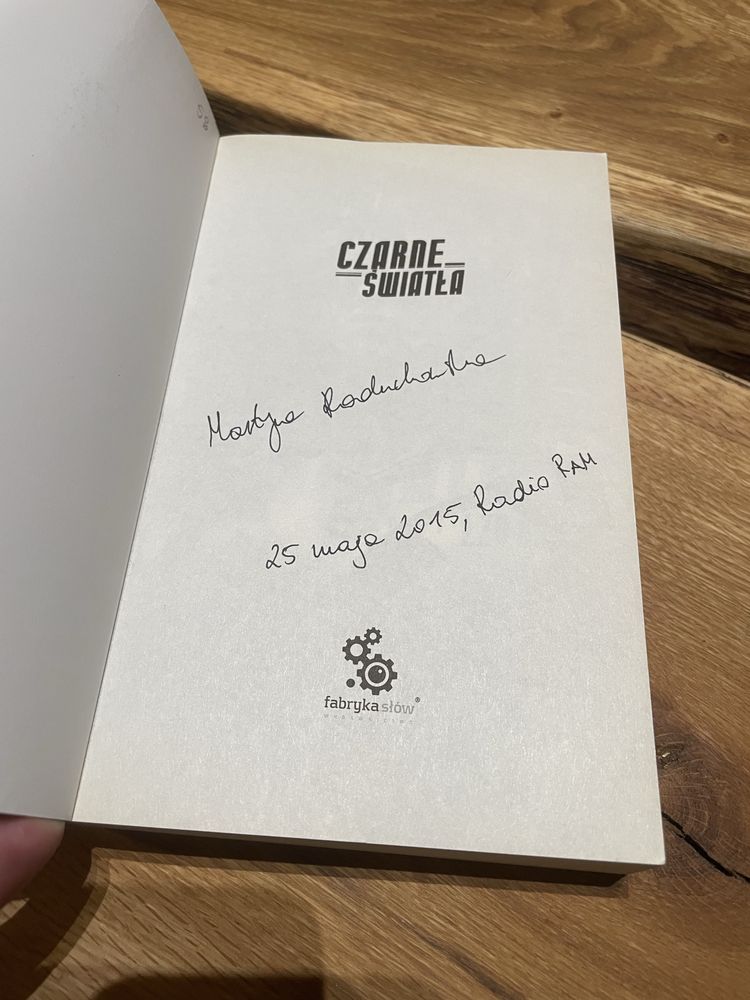 CZARNE
ŚWIATŁA
Martyna Raduchowska
25 maja 2015, Radio RAM
fabryka słów®
wydawnictwo